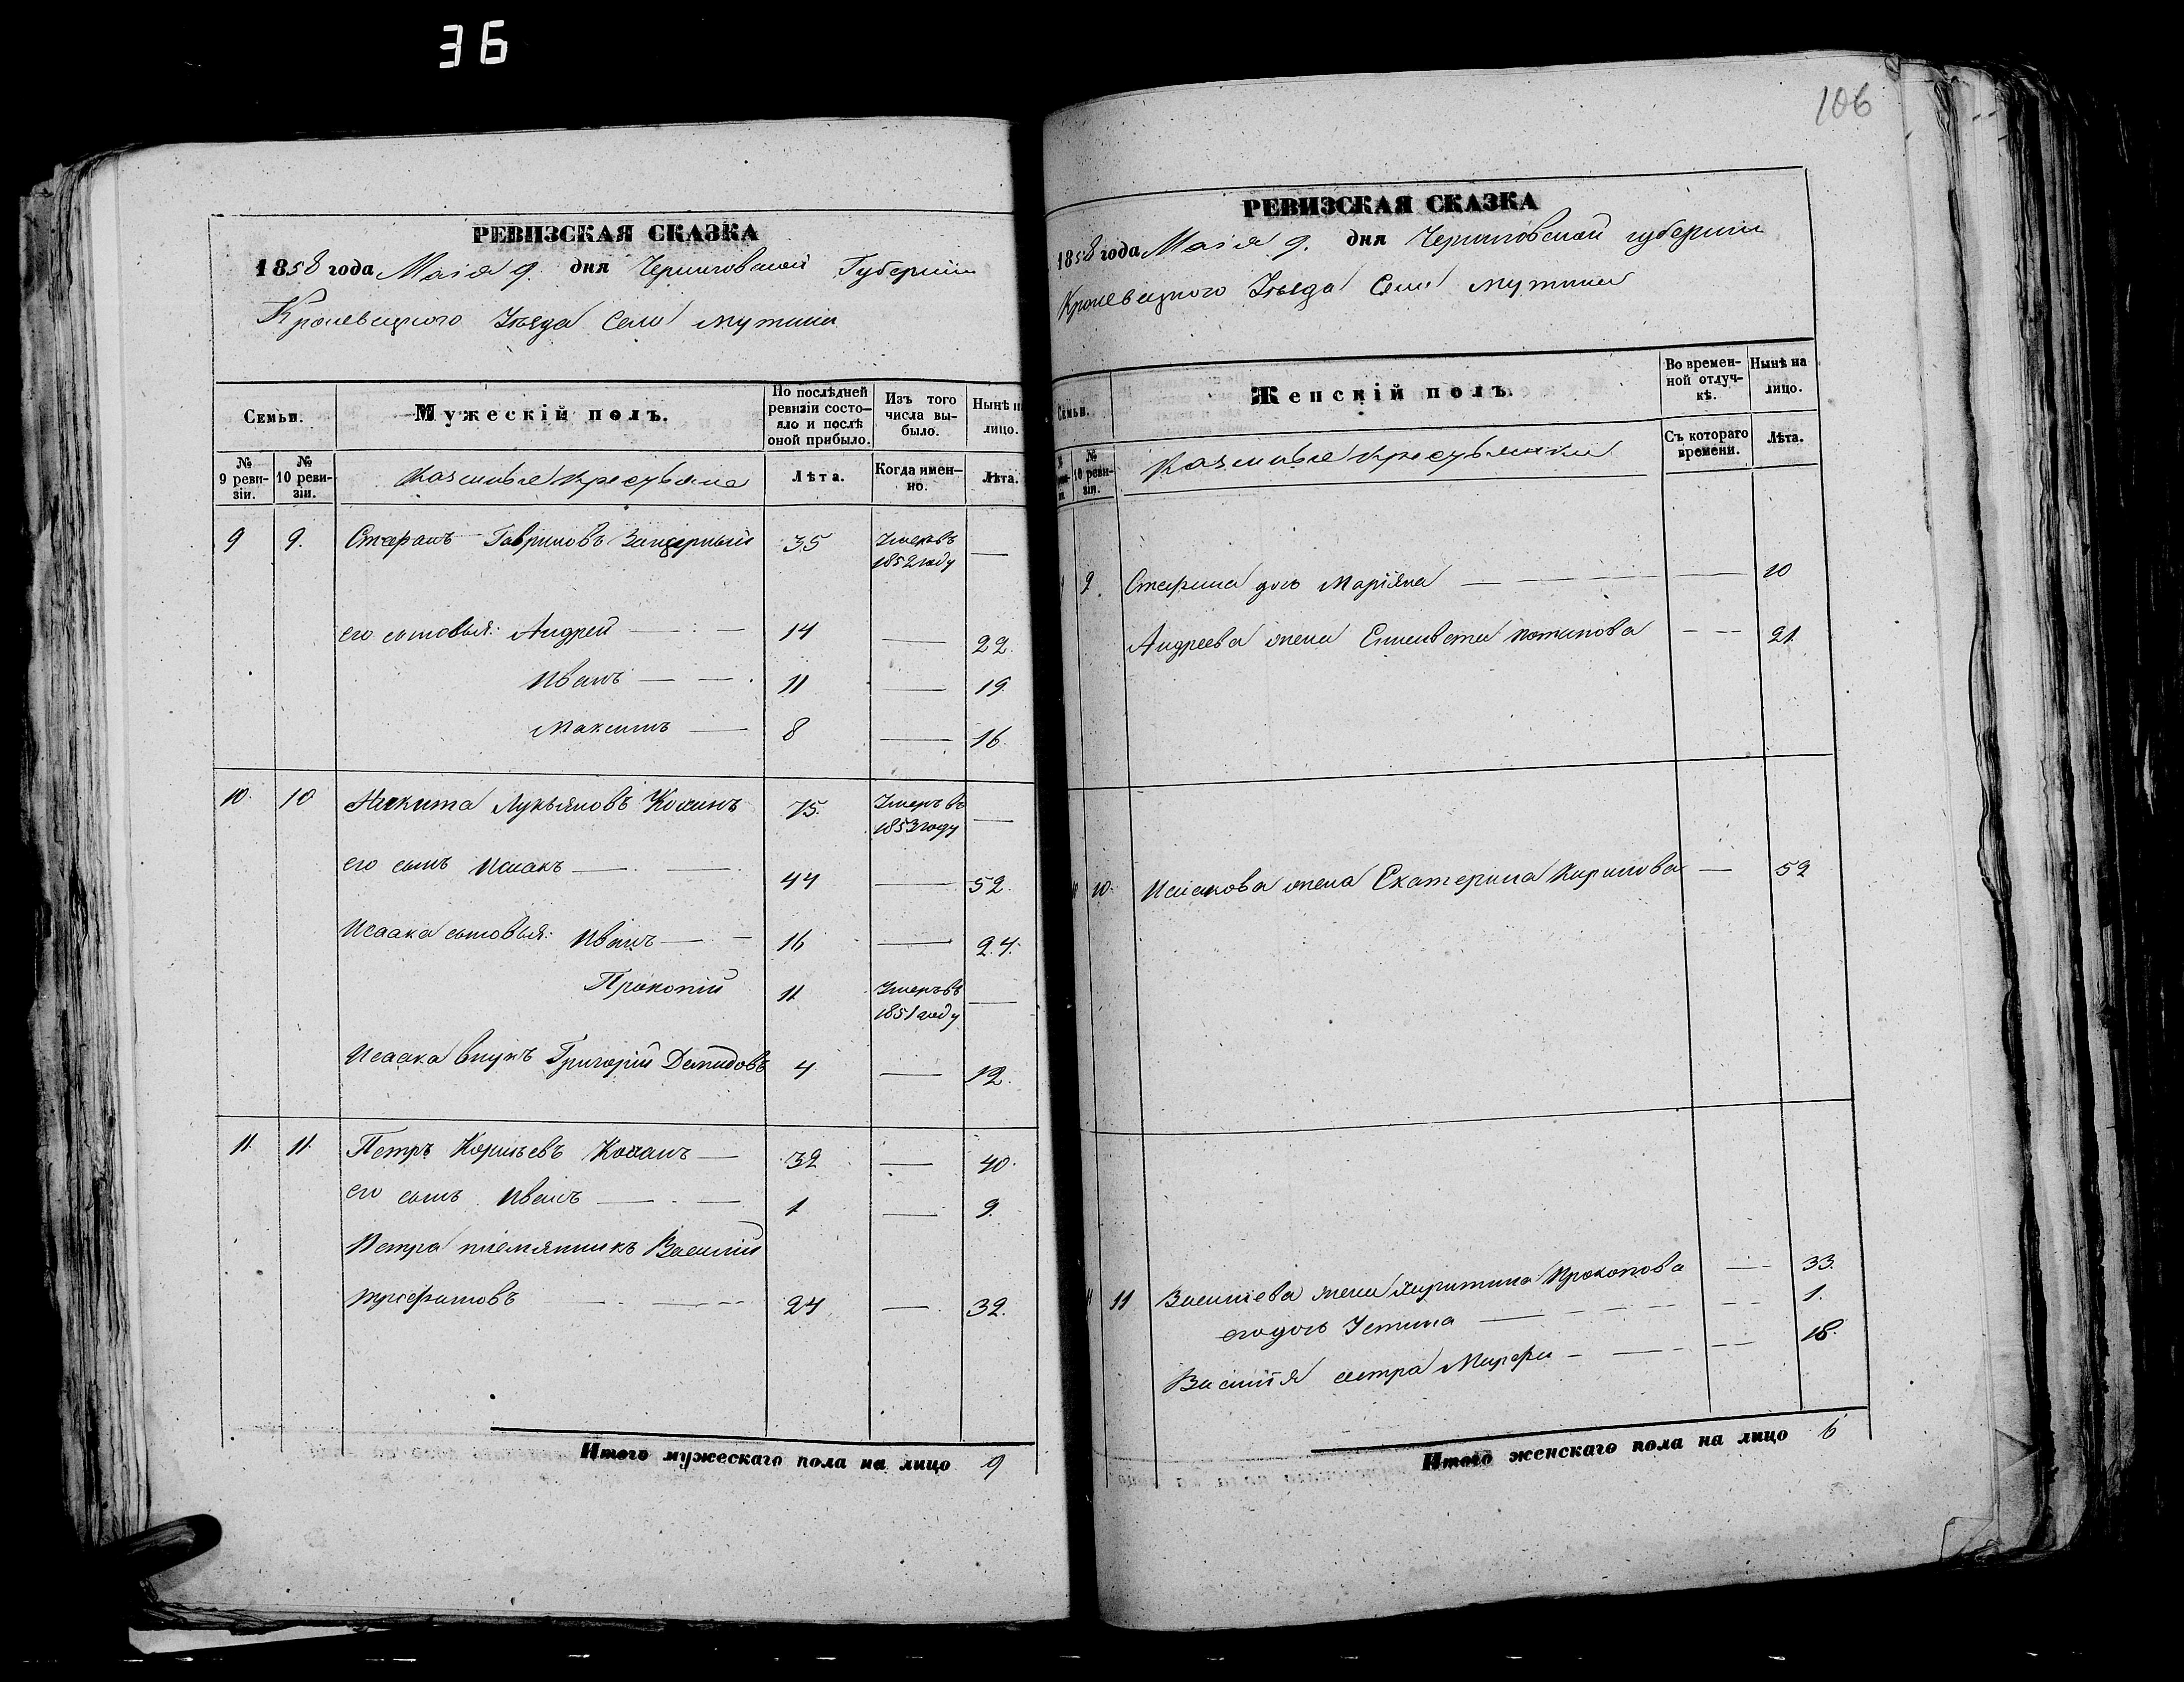 36
106
РЕВИЗСКАЯ СКАЗКА
1858 года Маія 9. дня Черниговской Губерніи
Кролевецкого Уѣзда Села Мутина
Семьи.
Мужескій полъ.
По послѣдней ревизіи состояло и послѣ оной прибыло.
Изъ того числа выбыло.
Нынѣ на лицо.
№ 9 ревизіи.
№ 10 ревизіи.
Казенные крестьяне
Лѣта.
Когда именно.
Лѣта.
9 9. Стефанъ Гавриловъ 35 Умеръ въ 1852 году —
его сыновья: Андрей — 14 — 22.
Иванъ — — 11 — 19.
Максимъ — 8 — 16.
10. 10 Никита Лукьяновъ Коханъ 75. Умеръ въ 1853 году —
его сынъ Исаакъ — — 44 — 52.
Исаака сыновья: Иванъ — — 16 — 24.
Прокопій 11 Умеръ въ 1851 году —
Исаака внукъ Григорій Демидовъ 4 — 12.
11. 11. Петръ Корнѣевъ Коханъ — 32 — 40.
его сынъ Иванъ — — 1 — 9.
Петра племянникъ Василій
Трофимовъ — — 24 — 32.
Итого мужескаго пола на лицо 9
РЕВИЗСКАЯ СКАЗКА
1858 года Маія 9. дня Черниговской губерніи
Кролевецкого Уѣзда Села Мутина
Семьи.
Женскій полъ.
Во временной отлучкѣ.
Нынѣ на лицо.
№ 10 ревизіи.
Казенные крестьянки
Съ котораго времени.
Лѣта.
9. Стефана дочь Маріяна — — — — 10
Андреева жена Елисавета Потапова — — 21.
10. Исаакова жена Екатерина Кирилова — 52
11 Васильева жена Прокопова — 33.
его дочь Устина — — — 1.
Василія сестра Марфа — — — 18.
Итого женскаго пола на лицо 6